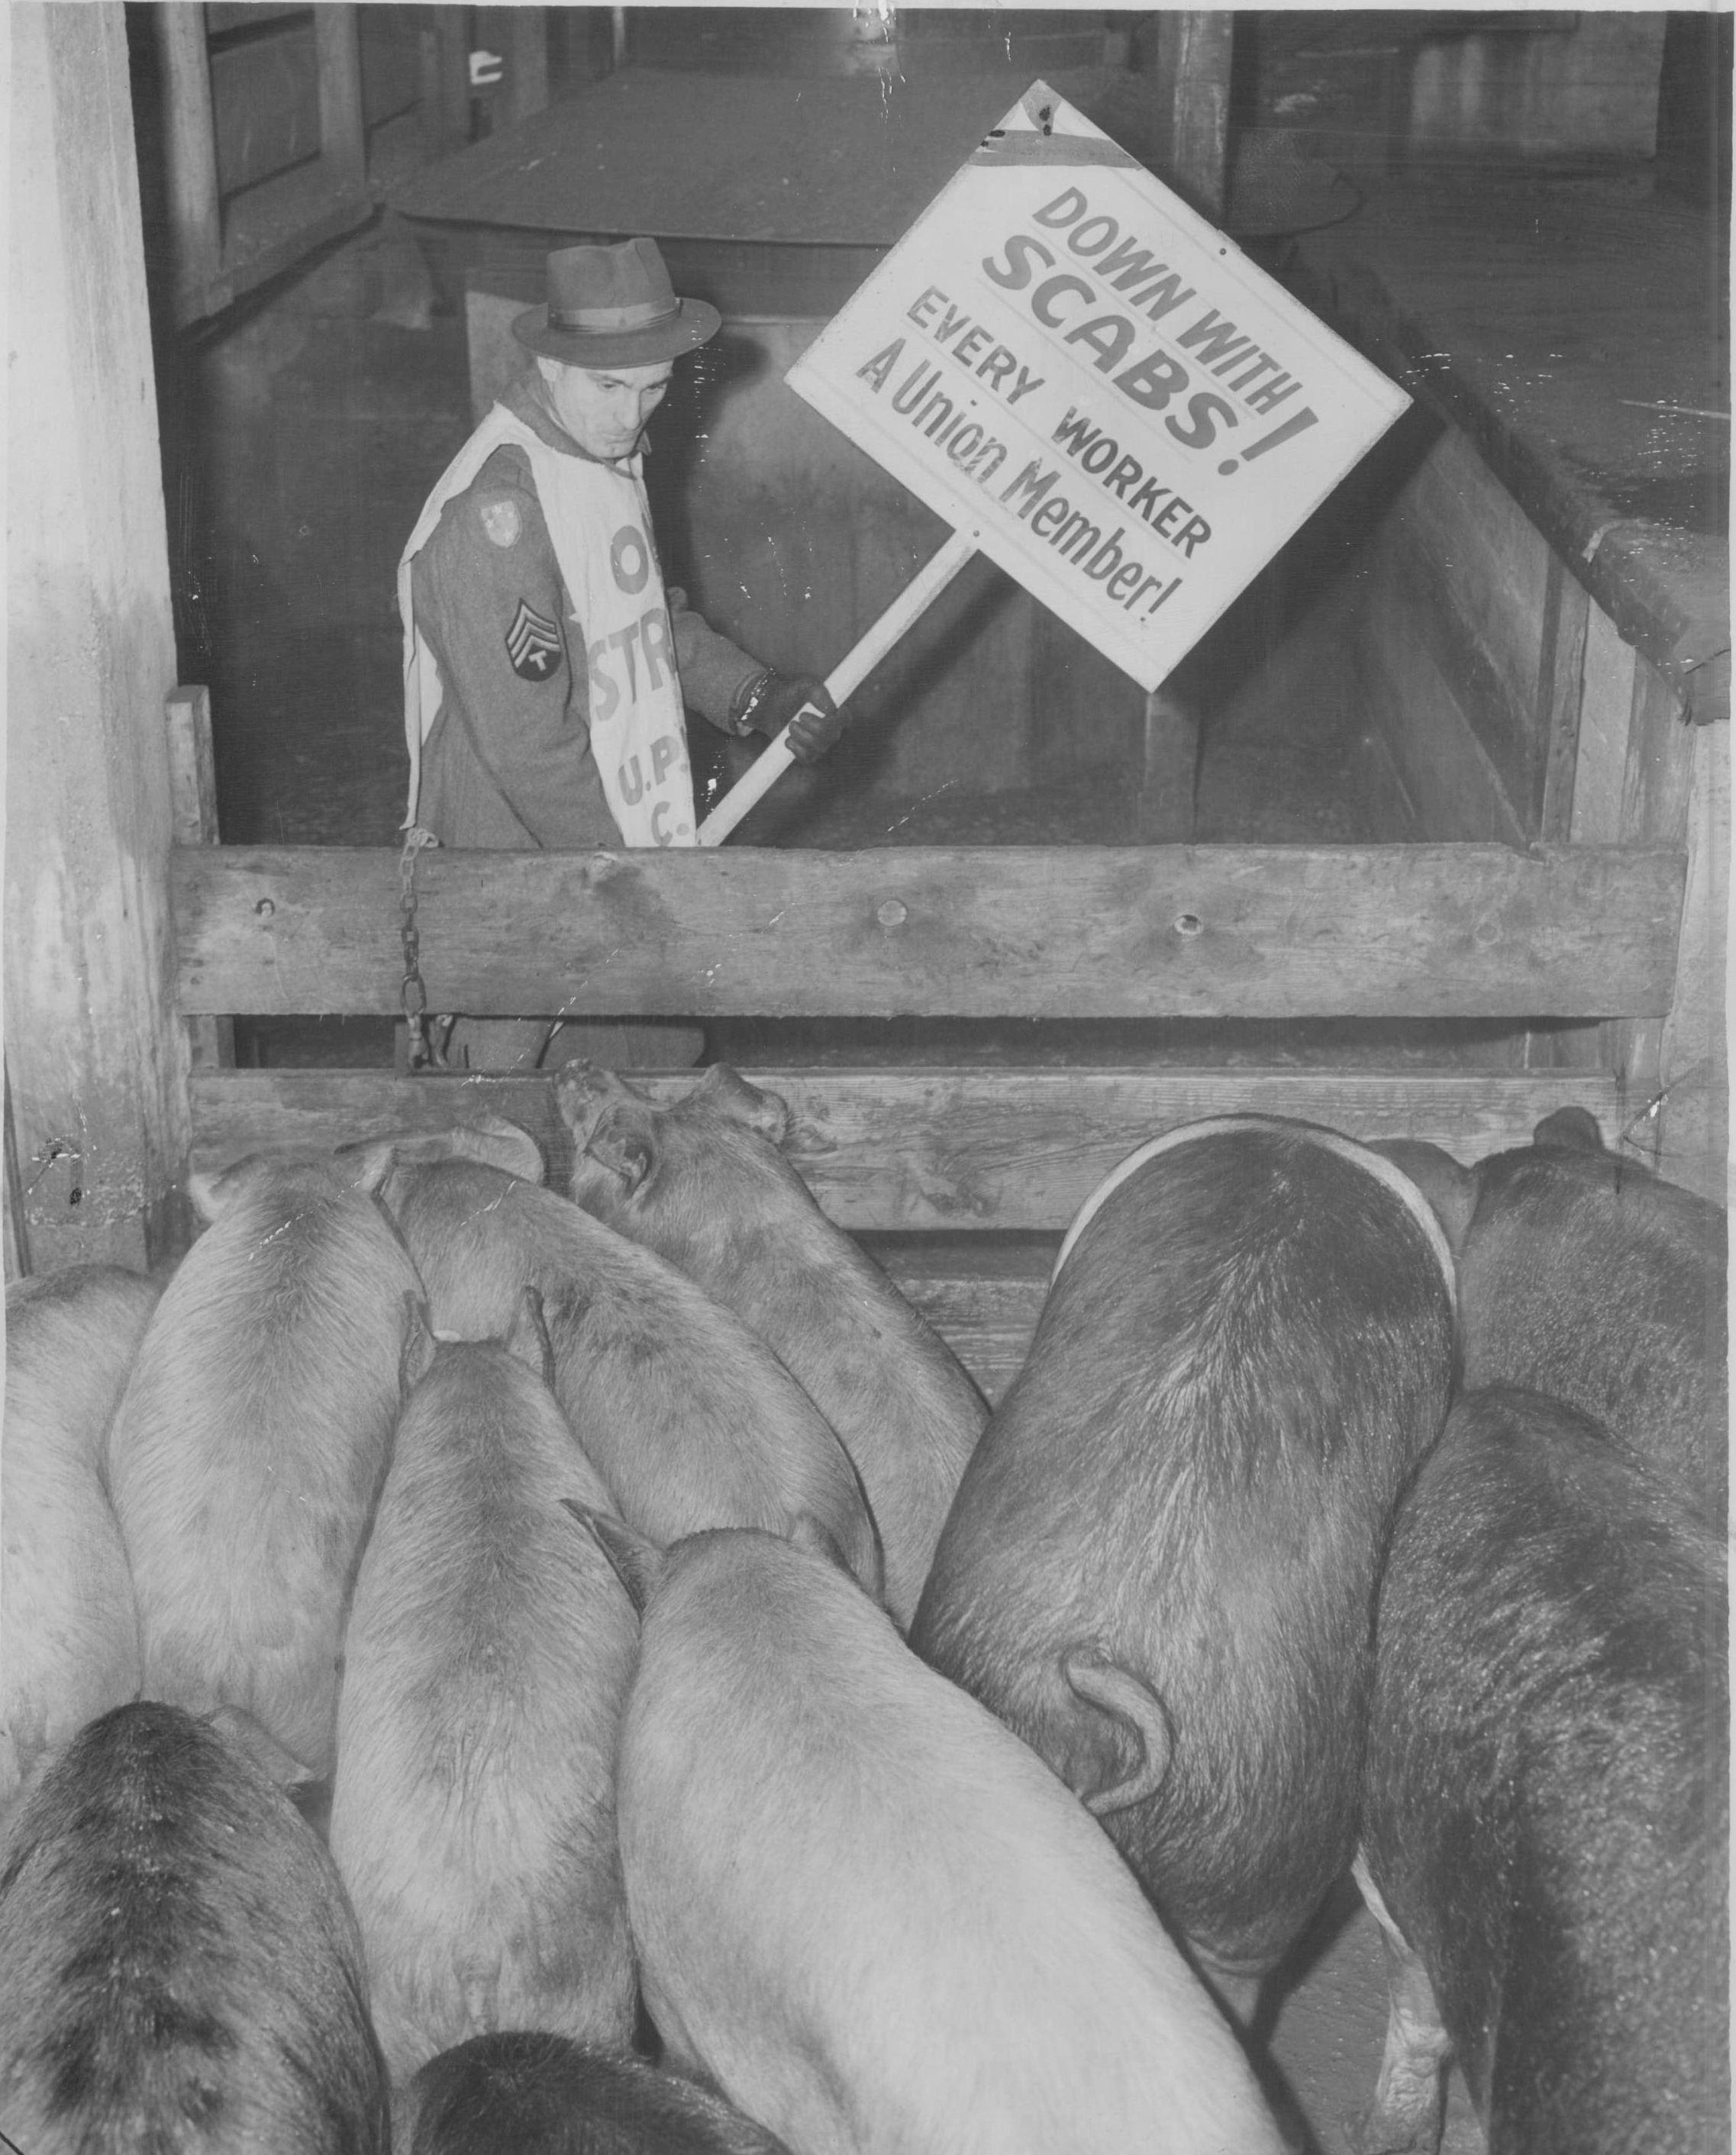 DOWN WITH
SCABS!
EVERY WORKER
A Union Member!
O
STR
U.P.
C.